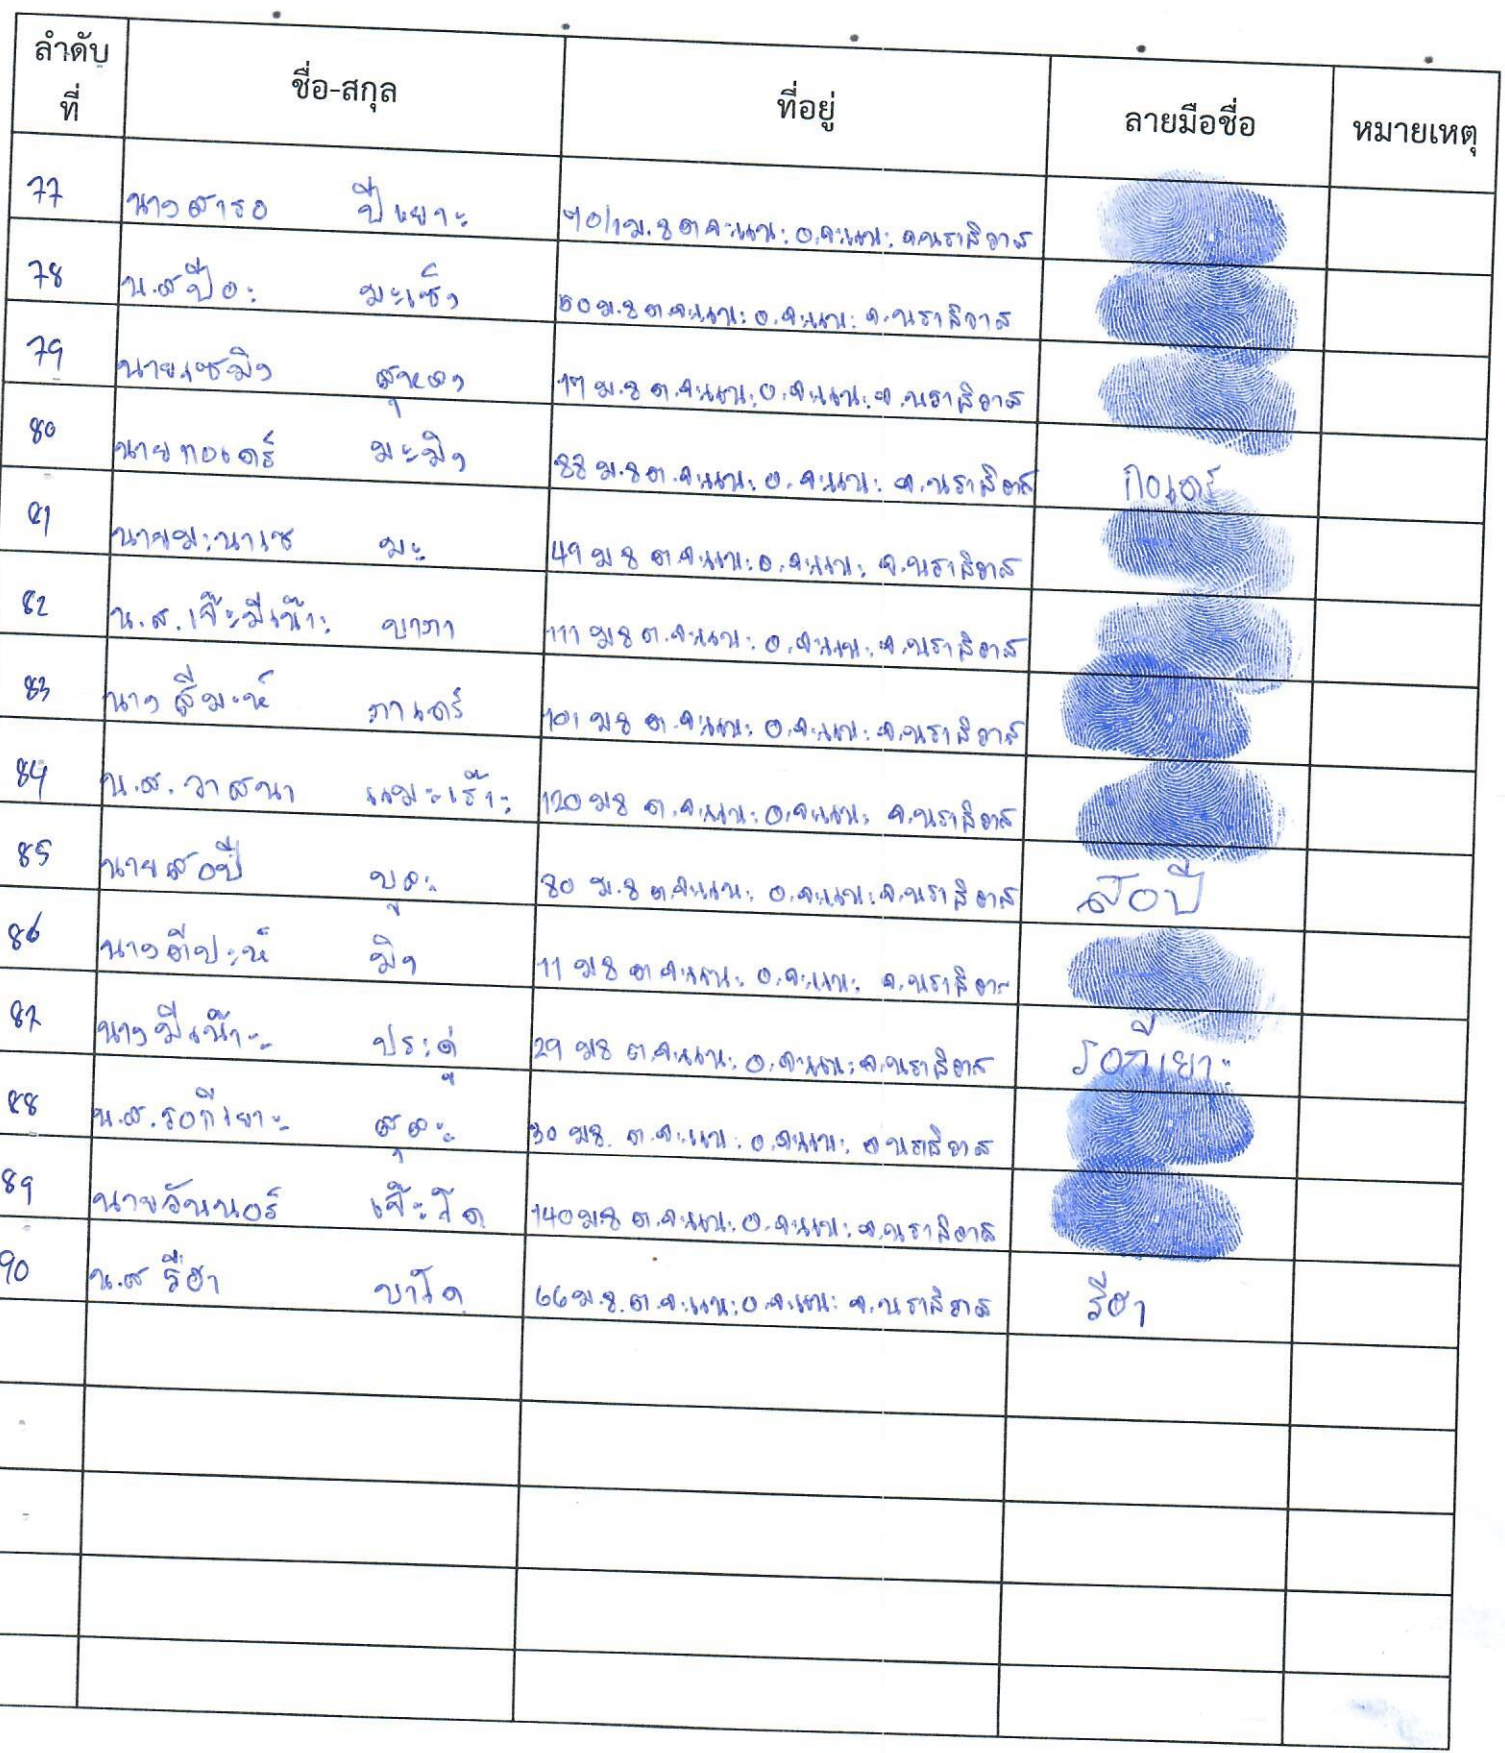 ลำดับที่ ชื่อ-สกุล ที่อยู่ ลายมือชื่อ หมายเหตุ
77 นางสารอ ปีเยาะ 70/1 ม.8 ต.จะแนะ อ.จะแนะ จ.นราธิวาส
78 น.ส ปีอะ มะเซ็ง 60 ม.8 ต.จะแนะ อ.จะแนะ จ.นราธิวาส
79 นายเซมิง สุหลง 17 ม.8 ต.จะแนะ อ.จะแนะ จ.นราธิวาส
80 นายกอเดร์ มะมิง 88 ม.8 ต.จะแนะ อ.จะแนะ จ.นราธิวาส กอเดร์
81 นายมะนาเซ มะ 49 ม 8 ต.จะแนะ อ.จะแนะ จ.นราธิวาส
82 น.ส.เจ๊ะมีเน๊าะ 111 ม 8 ต.จะแนะ อ.จะแนะ จ.นราธิวาส
83 นาง สีมะห์ กาเดร์ 101 ม 8 ต.จะแนะ อ.จะแนะ จ.นราธิวาส
84 น.ส. วาสนา แมะเร๊าะ 120 ม 8 ต.จะแนะ อ.จะแนะ จ.นราธิวาส
85 นายสอปี 80 ม.8 ต.จะแนะ อ.จะแนะ จ.นราธิวาส สอปี
86 นางตีปะห์ มิง 11 ม 8 ต.จะแนะ อ.จะแนะ จ.นราธิวาส
87 นางมีเน๊าะ ประดู่ 29 ม 8 ต.จะแนะ อ.จะแนะ จ.นราธิวาส รอกีเยาะ
88 น.ส.รอกีเยาะ 30 ม 8. ต.จะแนะ อ.จะแนะ จ.นราธิวาส
89 นายอันนอร์ เจ๊ะโด 140 ม.8 ต.จะแนะ อ.จะแนะ จ.นราธิวาส
90 น.ส รีฮา บาโด 66 ม.8. ต.จะแนะ อ.จะแนะ จ.นราธิวาส รีฮา